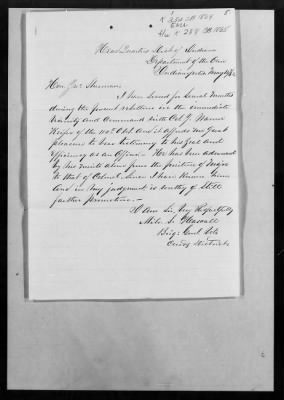 5
Head Quarters Dist of Indiana
Department of the Ohio
Indianapolis May
Hon Jas Sherman
I have served for several months
during the present rebellion in the immediate
vicinity and command with Col J. Warner
of the 110th Ohio. And it affords me great
pleasure to bear testimony to his zeal and
efficiency as an officer. He has been advanced
by his merits alone from the position of
to that of Colonel since I have known him
And in my judgment is worthy of still
further promotion.
I am Sir Very Respectfully
Milo S. Hascall
Brig: Genl Vols
Comdg District